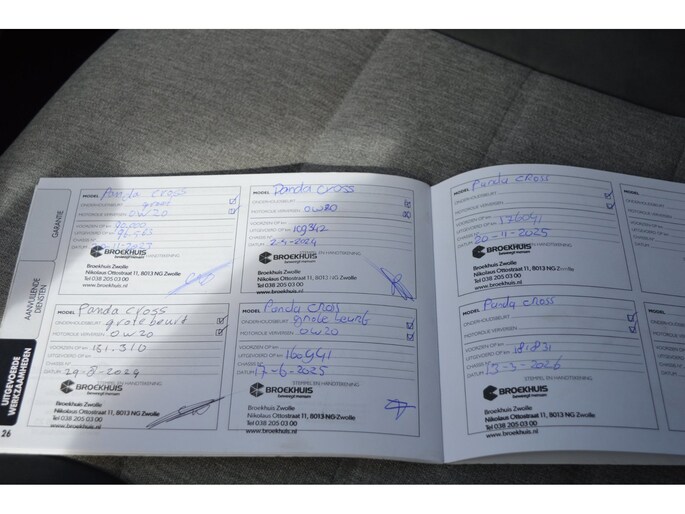 GARANTIE
AANVULLENDE
DIENSTEN
UITGEVOERDE
WERKZAAMHEDEN
26
MODEL Panda cross
ONDERHOUDSBEURT groot
MOTOROLIE VERVERSEN 0W20
VOORZIEN OP km
UITGEVOERD OP km
CHASSIS Nr
DATUM
BROEKHUIS
beweegt mensen
Broekhuis Zwolle
Nikolaus Ottostraat 11, 8013 NG Zwolle
Tel 038 205 03 00
www.broekhuis.nl
MODEL Panda cross
ONDERHOUDSBEURT
MOTOROLIE VERVERSEN 0W20
VOORZIEN OP km
UITGEVOERD OP km 109342
CHASSIS Nr
DATUM 2-4-2024
BROEKHUIS
beweegt mensen
Broekhuis Zwolle
Nikolaus Ottostraat 11, 8013 NG Zwolle
Tel 038 205 03 00
www.broekhuis.nl
MODEL Panda cross
ONDERHOUDSBEURT grote beurt
MOTOROLIE VERVERSEN 0W20
VOORZIEN OP km
UITGEVOERD OP km 131.310
CHASSIS Nr
DATUM 29-8-2024
STEMPEL EN HANDTEKENING
BROEKHUIS
beweegt mensen
Broekhuis Zwolle
Nikolaus Ottostraat 11, 8013 NG Zwolle
Tel 038 205 03 00
www.broekhuis.nl
MODEL Panda cross
ONDERHOUDSBEURT grote beurt
MOTOROLIE VERVERSEN 0W20
VOORZIEN OP km
UITGEVOERD OP km 160441
CHASSIS Nr
DATUM 17-6-2025
STEMPEL EN HANDTEKENING
BROEKHUIS
beweegt mensen
Broekhuis Zwolle
Nikolaus Ottostraat 11, 8013 NG Zwolle
Tel 038 205 03 00
www.broekhuis.nl
MODEL Panda cross
ONDERHOUDSBEURT
MOTOROLIE VERVERSEN
VOORZIEN OP km
UITGEVOERD OP km 176041
CHASSIS Nr
DATUM 20-11-2025
BROEKHUIS
beweegt mensen
Broekhuis Zwolle
Nikolaus Ottostraat 11, 8013 NG Zwolle
Tel 038 205 03 00
www.broekhuis.nl
MODEL Panda cross
ONDERHOUDSBEURT
MOTOROLIE VERVERSEN
VOORZIEN OP km
UITGEVOERD OP km 181831
CHASSIS Nr
DATUM 13-3-2026
STEMPEL EN HANDTEKENING
BROEKHUIS
beweegt mensen
Broekhuis Zwolle
Nikolaus Ottostraat 11, 8013 NG Zwolle
Tel 038 205 03 00
www.broekhuis.nl